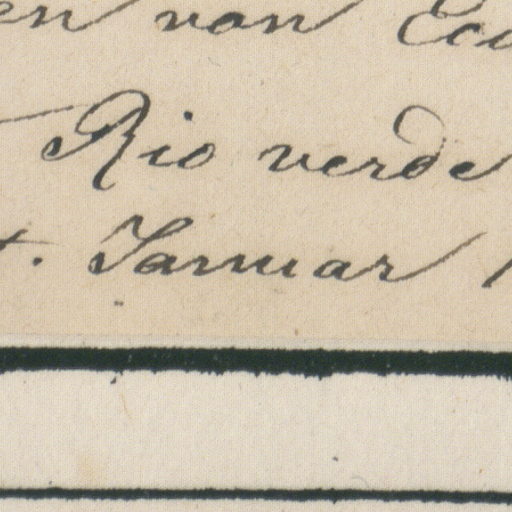 en von Ecu
Rio verde
t. Januar 1